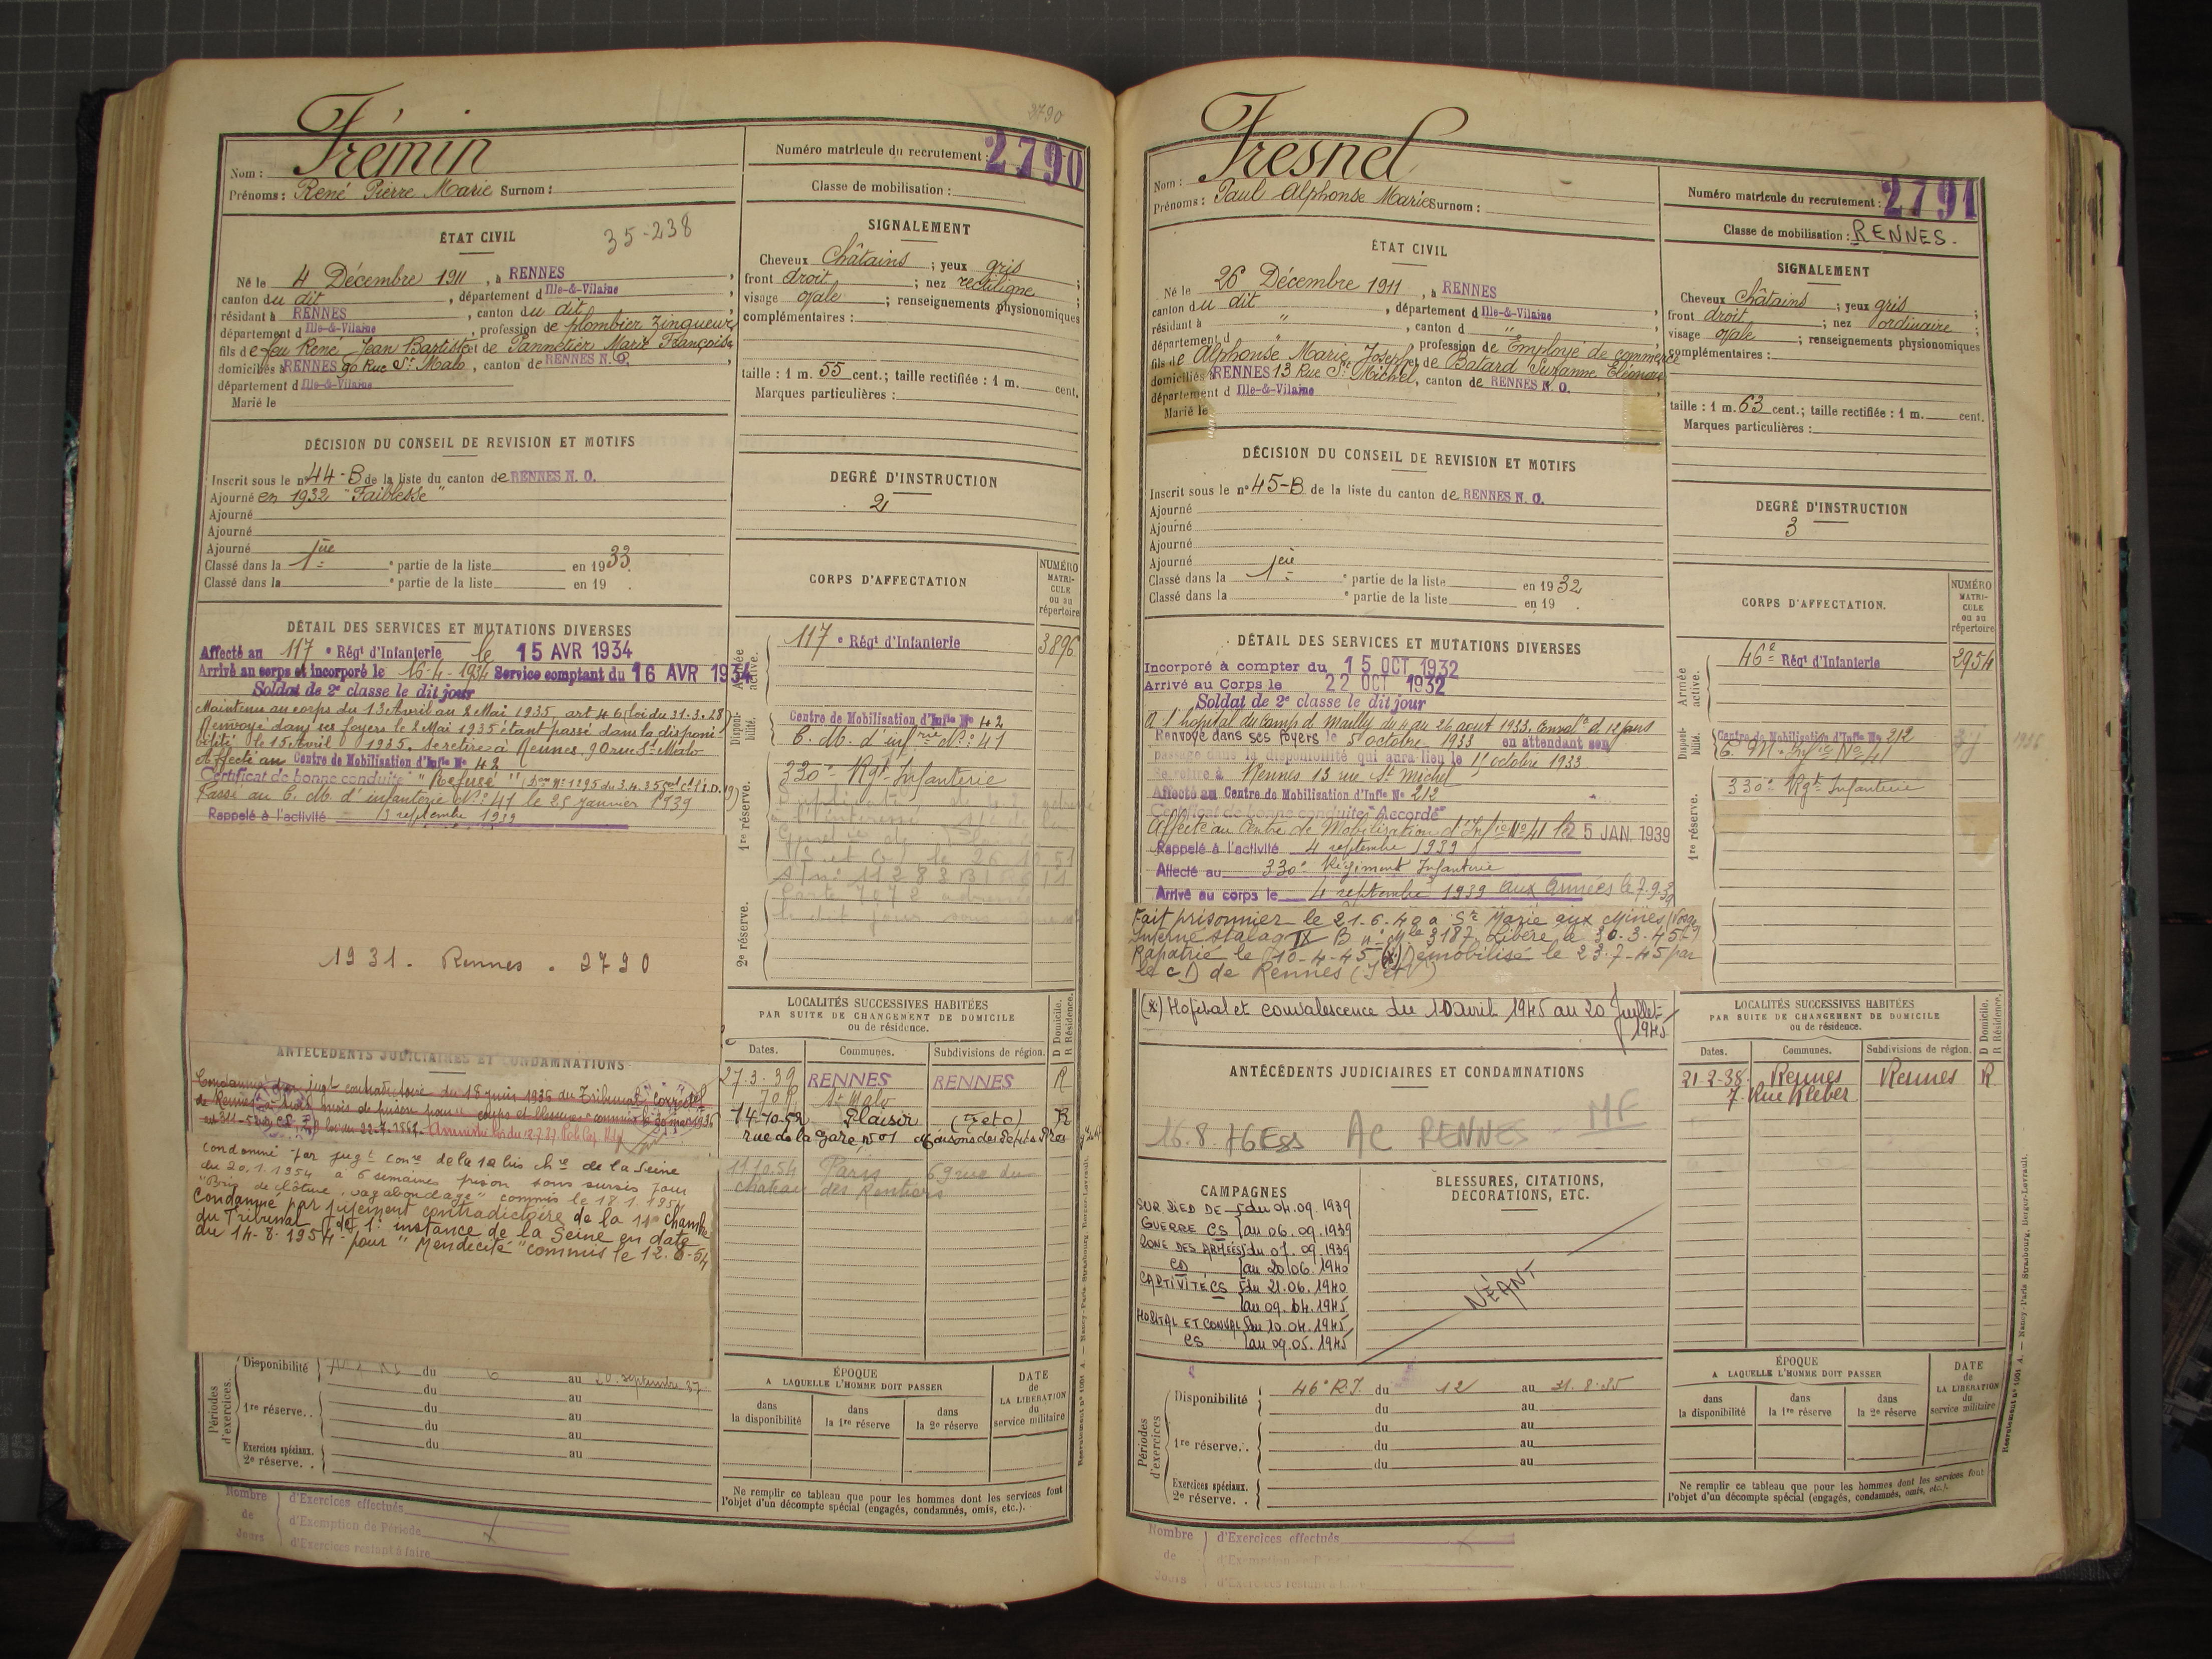 3790
Frémin
Nom :
Prénoms : René Pierre Marie Surnom :
Numéro matricule du recrutement : 2790
Classe de mobilisation :
ÉTAT CIVIL
35-238
Né le 4 Décembre 1911, à RENNES,
canton du dit, département d Ille-&-Vilaine,
résidant à RENNES, canton du dit,
département d Ille-&-Vilaine, profession de plombier zingueur
fils de feu René Jean Baptiste et de Pannetier Marie Françoise
domiciliés à RENNES 90 Rue St Malo, canton de RENNES N. O.,
département d Ille-&-Vilaine
Marié le
SIGNALEMENT
Cheveux Châtains ; yeux gris ;
front droit ; nez rectiligne ;
visage ovale ; renseignements physionomiques
complémentaires :
taille : 1 m. 55 cent.; taille rectifiée : 1 m. cent.
Marques particulières :
DÉCISION DU CONSEIL DE REVISION ET MOTIFS
Inscrit sous le n° 44-B de la liste du canton de RENNES N. O.
Ajourné en 1932 "Faiblesse"
Ajourné
Ajourné
Ajourné
Classé dans la 1ère partie de la liste en 1933.
Classé dans la e partie de la liste en 19 .
DEGRÉ D'INSTRUCTION
2
DÉTAIL DES SERVICES ET MUTATIONS DIVERSES
Affecté au 117 e Régt d'Infanterie le 15 AVR 1934
Arrivé au corps et incorporé le 16-4-1934 Service comptant du 16 AVR 1934
Soldat de 2e classe le dit jour
Maintenu au corps du 13 Avril au 2 Mai 1935 art 46 (loi du 31.3.28)
Renvoyé dans ses foyers le 2 Mai 1935 étant passé dans la disponi-
bilité le 15 Avril 1935. Se retire à Rennes 90 rue St Malo
Affecté au Centre de Mobilisation d'Infie No 42
Certificat de bonne conduite "Refusé"
Passé au C. M. d'infanterie No 41 le 25 janvier 1939
Rappelé à l'activité 13 septembre 1939
1931. Rennes. 2790
CORPS D'AFFECTATION
NUMÉRO MATRI-CULE ou au répertoire
Armée active.
117 e Régt d'Infanterie 3896
Disponibilité.
Centre de Mobilisation d'Infie No 42
C. M. d'infrie No 41
1re réserve.
330e Rgt Infanterie
2e réserve.
LOCALITÉS SUCCESSIVES HABITÉES
PAR SUITE DE CHANGEMENT DE DOMICILE
ou de résidence.
D Domicile. R Résidence.
Dates. Communes. Subdivisions de région.
27.3.39 RENNES RENNES R
St Malo
14-10-52 Plaisir (S et O) R
rue de la gare
11.10.54 Paris 69 rue du
chateau des Rentiers
ANTÉCÉDENTS JUDICIAIRES ET CONDAMNATIONS
Condamné par jugt contradictoire du 18 juin 1936 du Tribunal Correctel
de Rennes à trois mois de prison pour coups et blessures commis le 30 mai 1936
condamné par jugt conre de la 10 bis chre de la Seine
du 20.1.1954 à 6 semaines prison sans sursis pour
"Bris de clôture, vagabondage" commis le 18.1.1954
Condamné par jugement contradictoire de la 11e chambre
du Tribunal de 1e instance de la Seine en date
du 14-8-1954 pour "Mendicité" commis le 12.8-54
Périodes d'exercices.
Disponibilité du 6 au 20 septembre 37
du au
1re réserve. . du au
du au
du au
Exercices spéciaux.
2e réserve. .
ÉPOQUE
A LAQUELLE L'HOMME DOIT PASSER
dans la disponibilité
dans la 1re réserve
dans la 2e réserve
DATE de LA LIBÉRATION du service militaire
Ne remplir ce tableau que pour les hommes dont les services font
l'objet d'un décompte spécial (engagés, condamnés, omis, etc.).
Nombre de Jours
d'Exercices effectués
d'Exemption de Période
d'Exercices restant à faire
Fresnel
Nom :
Prénoms : Paul Alphonse Marie Surnom :
Numéro matricule du recrutement : 2791
Classe de mobilisation : RENNES.
ÉTAT CIVIL
Né le 26 Décembre 1911, à RENNES
canton du dit, département d Ille-&-Vilaine
résidant à ", canton d "
département d , profession de Employé de commerce
fils de Alphonse Marie Joseph et de Batard Suzanne Eléonore
domiciliés à RENNES 13 Rue St Michel, canton de RENNES N. O.
département d Ille-&-Vilaine
Marié le
SIGNALEMENT
Cheveux Châtains ; yeux gris ;
front droit ; nez ordinaire ;
visage ovale ; renseignements physionomiques
complémentaires :
taille : 1 m. 63 cent.; taille rectifiée : 1 m. cent.
Marques particulières :
DÉCISION DU CONSEIL DE REVISION ET MOTIFS
Inscrit sous le n° 45-B de la liste du canton de RENNES N. O.
Ajourné
Ajourné
Ajourné
Ajourné
Classé dans la 1ère partie de la liste en 1932
Classé dans la e partie de la liste en 19 .
DEGRÉ D'INSTRUCTION
3
DÉTAIL DES SERVICES ET MUTATIONS DIVERSES
Incorporé à compter du 15 OCT 1932
Arrivé au Corps le 22 OCT 1932
Soldat de 2e classe le dit jour
A l'hopital du camp d Mailly du 4 au 26 aout 1933. Conval ce d 12 jours
Renvoyé dans ses foyers le 5 octobre 1933 en attendant son
passage dans la disponibilité qui aura lieu le 15 octobre 1933
Se retire à Rennes 13 rue St Michel
Affecté au Centre de Mobilisation d'Infie No 212
Certificat de bonne conduite "Accordé"
Affecté au Centre de Mobilisation d'Infie No 41 le 25 JAN. 1939
Rappelé à l'activité 4 septembre 1939
Affecté au 330e Régiment Infanterie
Arrivé au corps le 4 septembre 1939 aux Armées le 7.9.39
Fait prisonnier le 21.6.40 a Ste Marie aux Mines (Vosges
Interné stalag IX B n° Mle 3187 Libéré le 30.3.45
Rapatrié le 10-4-45 (x) Démobilisé le 23.7-45 par
le CD de Rennes
(x) Hopital et convalescence du 10 avril 1945 au 20 Juillet
1945
CORPS D'AFFECTATION.
NUMÉRO MATRI-CULE ou au répertoire
Armée active.
46e Régt d'Infanterie 2954
Disponibilité.
Centre de Mobilisation d'Infie No 212
C. M. Infie No 41
1re réserve.
330e Rgt Infanterie
LOCALITÉS SUCCESSIVES HABITÉES
PAR SUITE DE CHANGEMENT DE DOMICILE
ou de résidence.
D Domicile. R Résidence.
Dates. Communes. Subdivisions de région.
21-2-38. Rennes Rennes R
7. Rue Kléber
ANTÉCÉDENTS JUDICIAIRES ET CONDAMNATIONS
16.8.76 Ess AC RENNES MF
CAMPAGNES
SUR PIED DE du 04.09.1939
GUERRE CS au 06.09.1939
ZONE DES ARMÉES du 07.09.1939
CD au 20.06.1940
CAPTIVITÉ CS du 21.06.1940
au 09.04.1945
HOPITAL ET CONVAL du 10.04.1945
CS au 09.05.1945
BLESSURES, CITATIONS,
DÉCORATIONS, ETC.
NÉANT
Périodes d'exercices
Disponibilité 46e R.I. du 12 au 31.8.35
du au
1re réserve. . du au
du au
du au
Exercices spéciaux.
2e réserve. .
ÉPOQUE
A LAQUELLE L'HOMME DOIT PASSER
dans la disponibilité
dans la 1re réserve
dans la 2e réserve
DATE de LA LIBÉRATION du service militaire
Ne remplir ce tableau que pour les hommes dont les services font
l'objet d'un décompte spécial (engagés, condamnés, omis, etc.).
Nombre de Jours
d'Exercices effectués
d'Exemption de Période
d'Exercices restant à faire